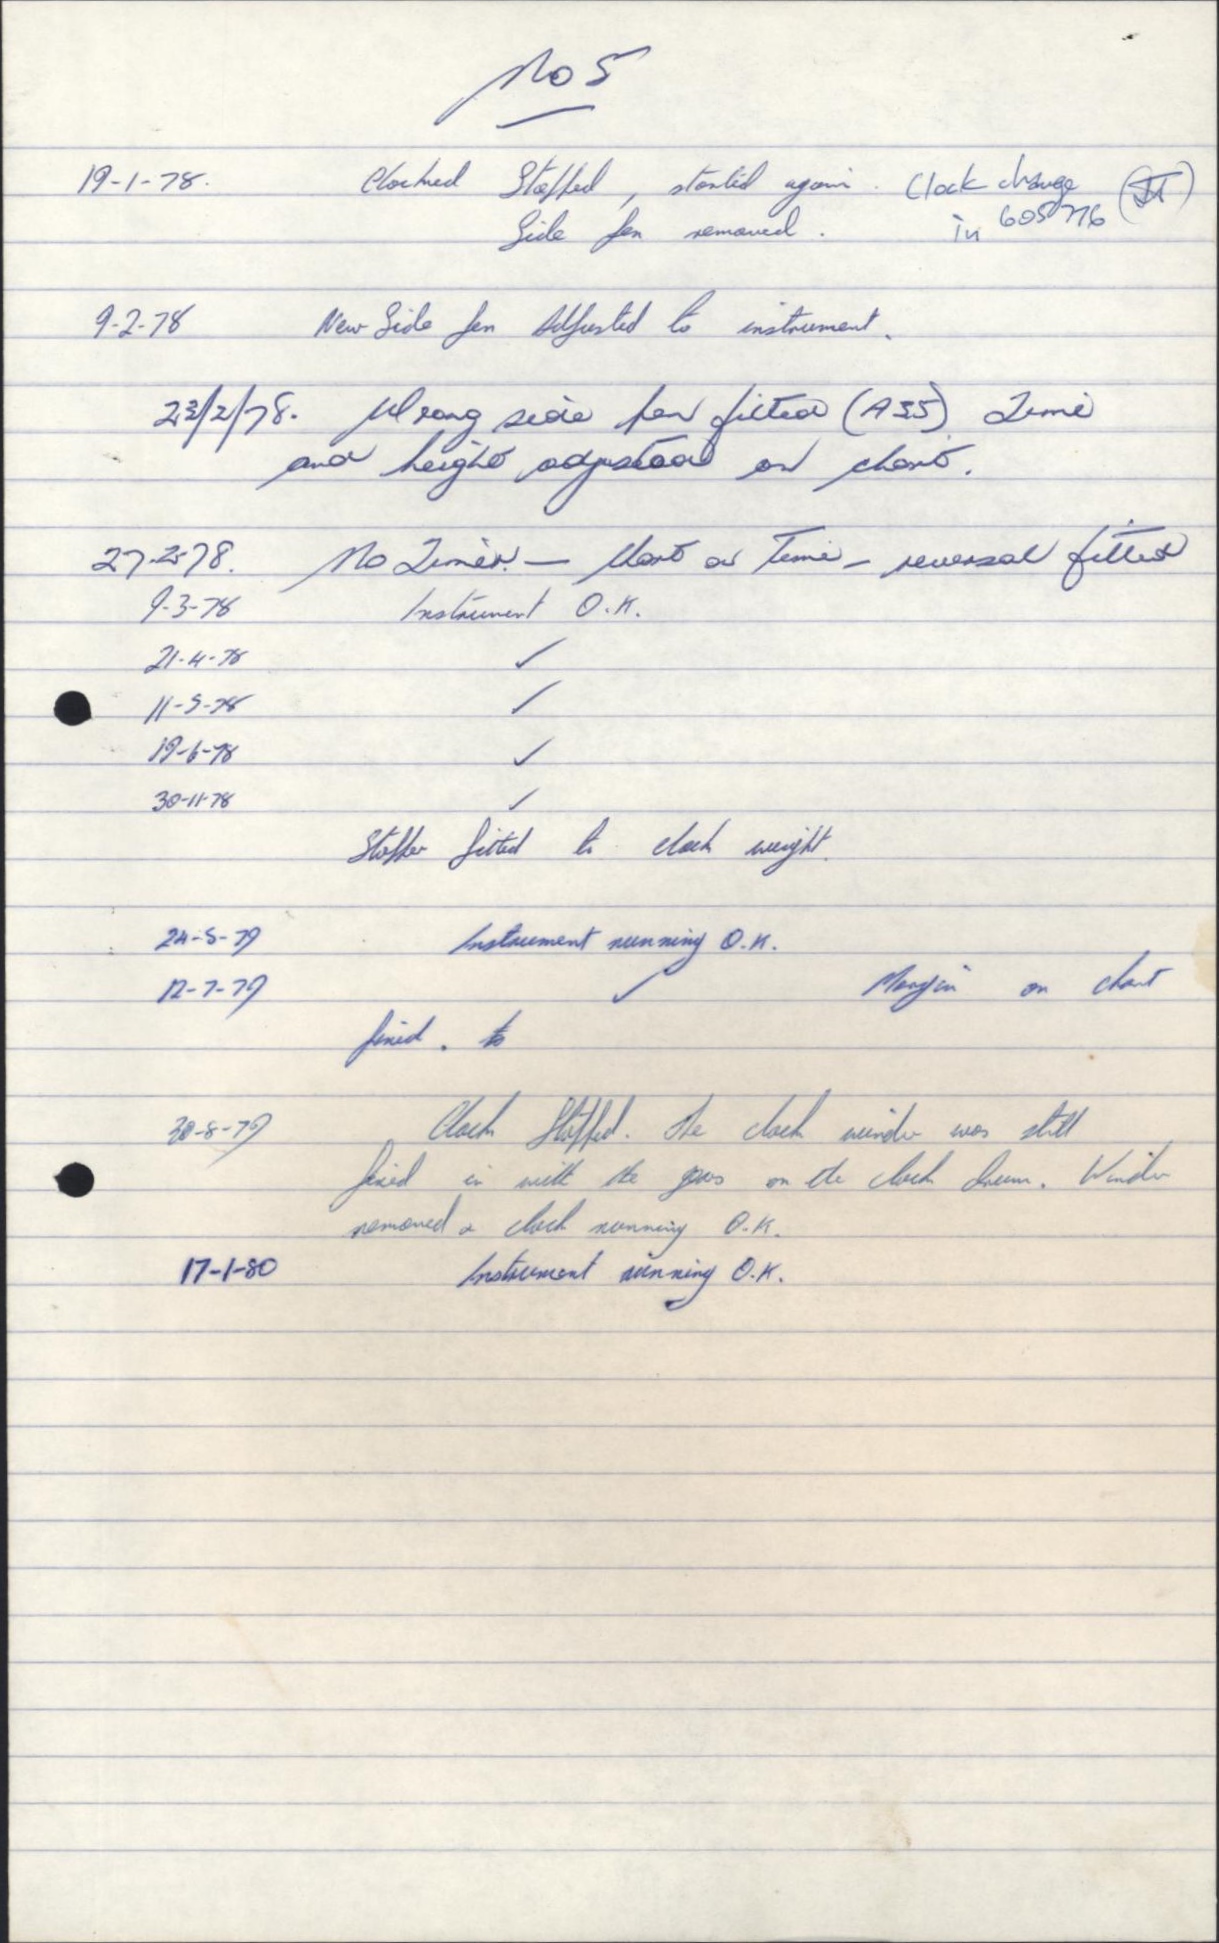 No 5
19-1-78. Clocked Stopped, started again. Clock change
Side Pen removed. in 605776 (JT)
9-2-78 New Side Pen Adjusted to instrument.
23/2/78. Wrong side pen fitted (A35) Time
and height adjusted on chart.
27-2-78. No Timer. — Chart on Time — reversal fitted
9-3-78 Instrument O.K.
21-4-78 ✓
11-5-78 ✓
19-6-78 ✓
30-11-78 ✓
Stopper fitted to clock weight.
24-5-79 Instrument running O.K.
12-7-79 ✓ Margin on chart
fixed. to
30-8-79 Clock Stopped. The clock winder was still
fixed in with the gears on the clock drum. Winder
removed & clock running O.K.
17-1-80 Instrument running O.K.